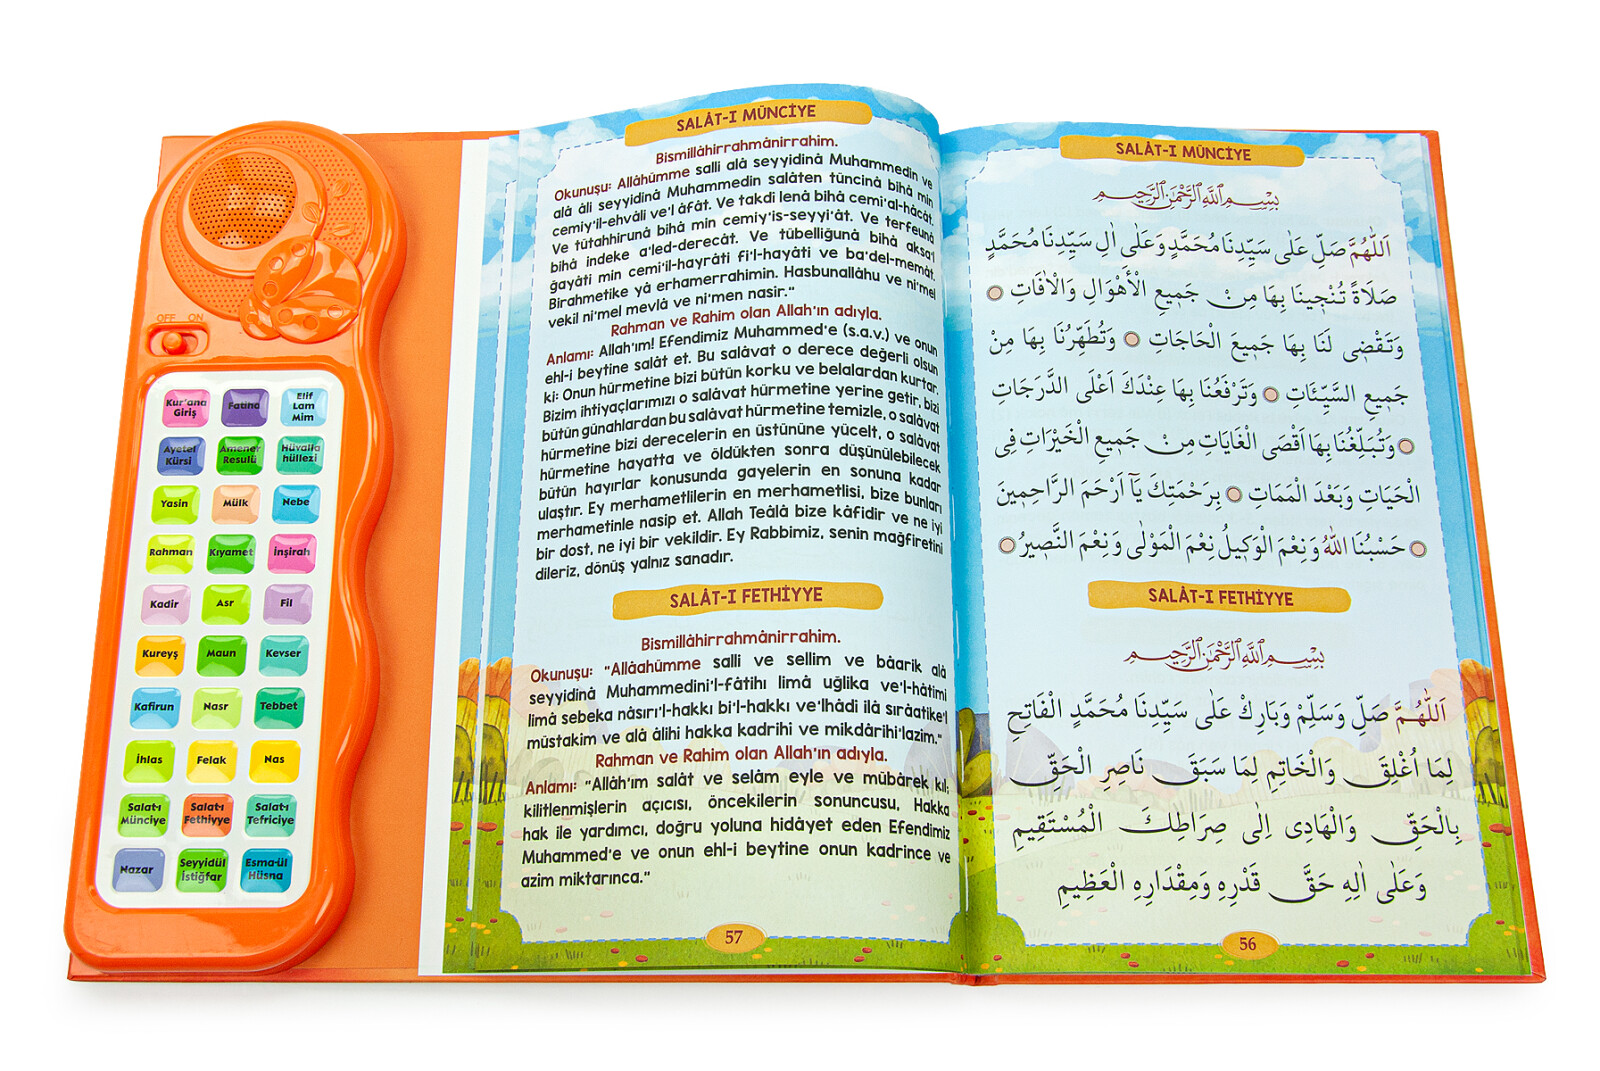 OFF ON
Kur'ana Giriş
Fatiha
Elif Lam Mim
Ayetel Kürsi
Amener Resulü
Hüvalla hüllezi
Yasin
Mülk
Nebe
Rahman
Kıyamet
İnşirah
Kadir
Asr
Fil
Kureyş
Maun
Kevser
Kafirun
Nasr
Tebbet
İhlas
Felak
Nas
Salat-ı Münciye
Salat-ı Fethiyye
Salat-ı Tefriciye
Nazar
Seyyidül İstiğfar
Esma-ül Hüsna
SALÂT-I MÜNCİYE
Bismillâhirrahmânirrahim.
Okunuşu: Allâhümme salli alâ seyyidinâ Muhammedin ve
alâ âli seyyidinâ Muhammedin salâten tüncinâ bihâ min
cemiy'il-ehvâli ve'l âfât. Ve takdi lenâ bihâ cemi'al-hâcât.
Ve tütahhirunâ bihâ min cemiy'is-seyyi'ât. Ve terfeunâ
bihâ indeke a'led-derecât. Ve tübelliğunâ bihâ aksa'l
ğayâti min cemi'il-hayrâti fi'l-hayâti ve ba'del-memât.
Birahmetike yâ erhamerrahimin. Hasbunallâhu ve ni'mel
vekil ni'mel mevlâ ve ni'men nasir."
Rahman ve Rahim olan Allah'ın adıyla.
Anlamı: Allah'ım! Efendimiz Muhammed'e (s.a.v.) ve onun
ehl-i beytine salât et. Bu salâvat o derece değerli olsun
ki: Onun hürmetine bizi bütün korku ve belalardan kurtar.
Bizim ihtiyaçlarımızı o salâvat hürmetine yerine getir, bizi
bütün günahlardan bu salâvat hürmetine temizle, o salâvat
hürmetine bizi derecelerin en üstününe yücelt, o salâvat
hürmetine hayatta ve öldükten sonra düşünülebilecek
bütün hayırlar konusunda gayelerin en sonuna kadar
ulaştır. Ey merhametlilerin en merhametlisi, bize bunları
merhametinle nasip et. Allah Teâlâ bize kâfidir ve ne iyi
bir dost, ne iyi bir vekildir. Ey Rabbimiz, senin mağfiretini
dileriz, dönüş yalnız sanadır.
SALÂT-I FETHİYYE
Bismillâhirrahmânirrahim.
Okunuşu: "Allâahümme salli ve sellim ve bâarik alâ
seyyidinâ Muhammedini'l-fâtihı limâ uğlika ve'l-hâtimi
limâ sebeka nâsırı'l-hakkı bi'l-hakkı ve'lhâdi ilâ sırâatike'l
müstakim ve alâ âlihi hakka kadrihi ve mikdârihi'lazim."
Rahman ve Rahim olan Allah'ın adıyla.
Anlamı: "Allâh'ım salât ve selâm eyle ve mübârek kıl;
kilitlenmişlerin açıcısı, öncekilerin sonuncusu, Hakka
hak ile yardımcı, doğru yoluna hidâyet eden Efendimiz
Muhammed'e ve onun ehl-i beytine onun kadrince ve
azim miktarınca."
57
SALÂT-I MÜNCİYE
بِسْمِ اللّٰهِ الرَّحْمٰنِ الرَّحِيمِ
اَللّٰهُمَّ صَلِّ عَلٰى سَيِّدِنَا مُحَمَّدٍ وَعَلٰى اٰلِ سَيِّدِنَا مُحَمَّدٍ
صَلَاةً تُنْجِينَا بِهَا مِنْ جَمِيعِ الْأَهْوَالِ وَالْاٰفَاتِ
وَتَقْضِى لَنَا بِهَا جَمِيعَ الْحَاجَاتِ وَتُطَهِّرُنَا بِهَا مِنْ
جَمِيعِ السَّيِّئَاتِ وَتَرْفَعُنَا بِهَا عِنْدَكَ اَعْلَى الدَّرَجَاتِ
وَتُبَلِّغُنَا بِهَا اَقْصَى الْغَايَاتِ مِنْ جَمِيعِ الْخَيْرَاتِ فِى
الْحَيَاتِ وَبَعْدَ الْمَمَاتِ بِرَحْمَتِكَ يَآ اَرْحَمَ الرَّاحِمِينَ
حَسْبُنَا اللّٰهُ وَنِعْمَ الْوَكِيلُ نِعْمَ الْمَوْلٰى وَنِعْمَ النَّصِيرُ
SALÂT-I FETHİYYE
بِسْمِ اللّٰهِ الرَّحْمٰنِ الرَّحِيمِ
اَللّٰهُمَّ صَلِّ وَسَلِّمْ وَبَارِكْ عَلٰى سَيِّدِنَا مُحَمَّدٍ الْفَاتِحِ
لِمَا اُغْلِقَ وَالْخَاتِمِ لِمَا سَبَقَ نَاصِرِ الْحَقِّ
بِالْحَقِّ وَالْهَادِى اِلٰى صِرَاطِكَ الْمُسْتَقِيمِ
وَعَلٰى اٰلِهِ حَقَّ قَدْرِهِ وَمِقْدَارِهِ الْعَظِيمِ
56